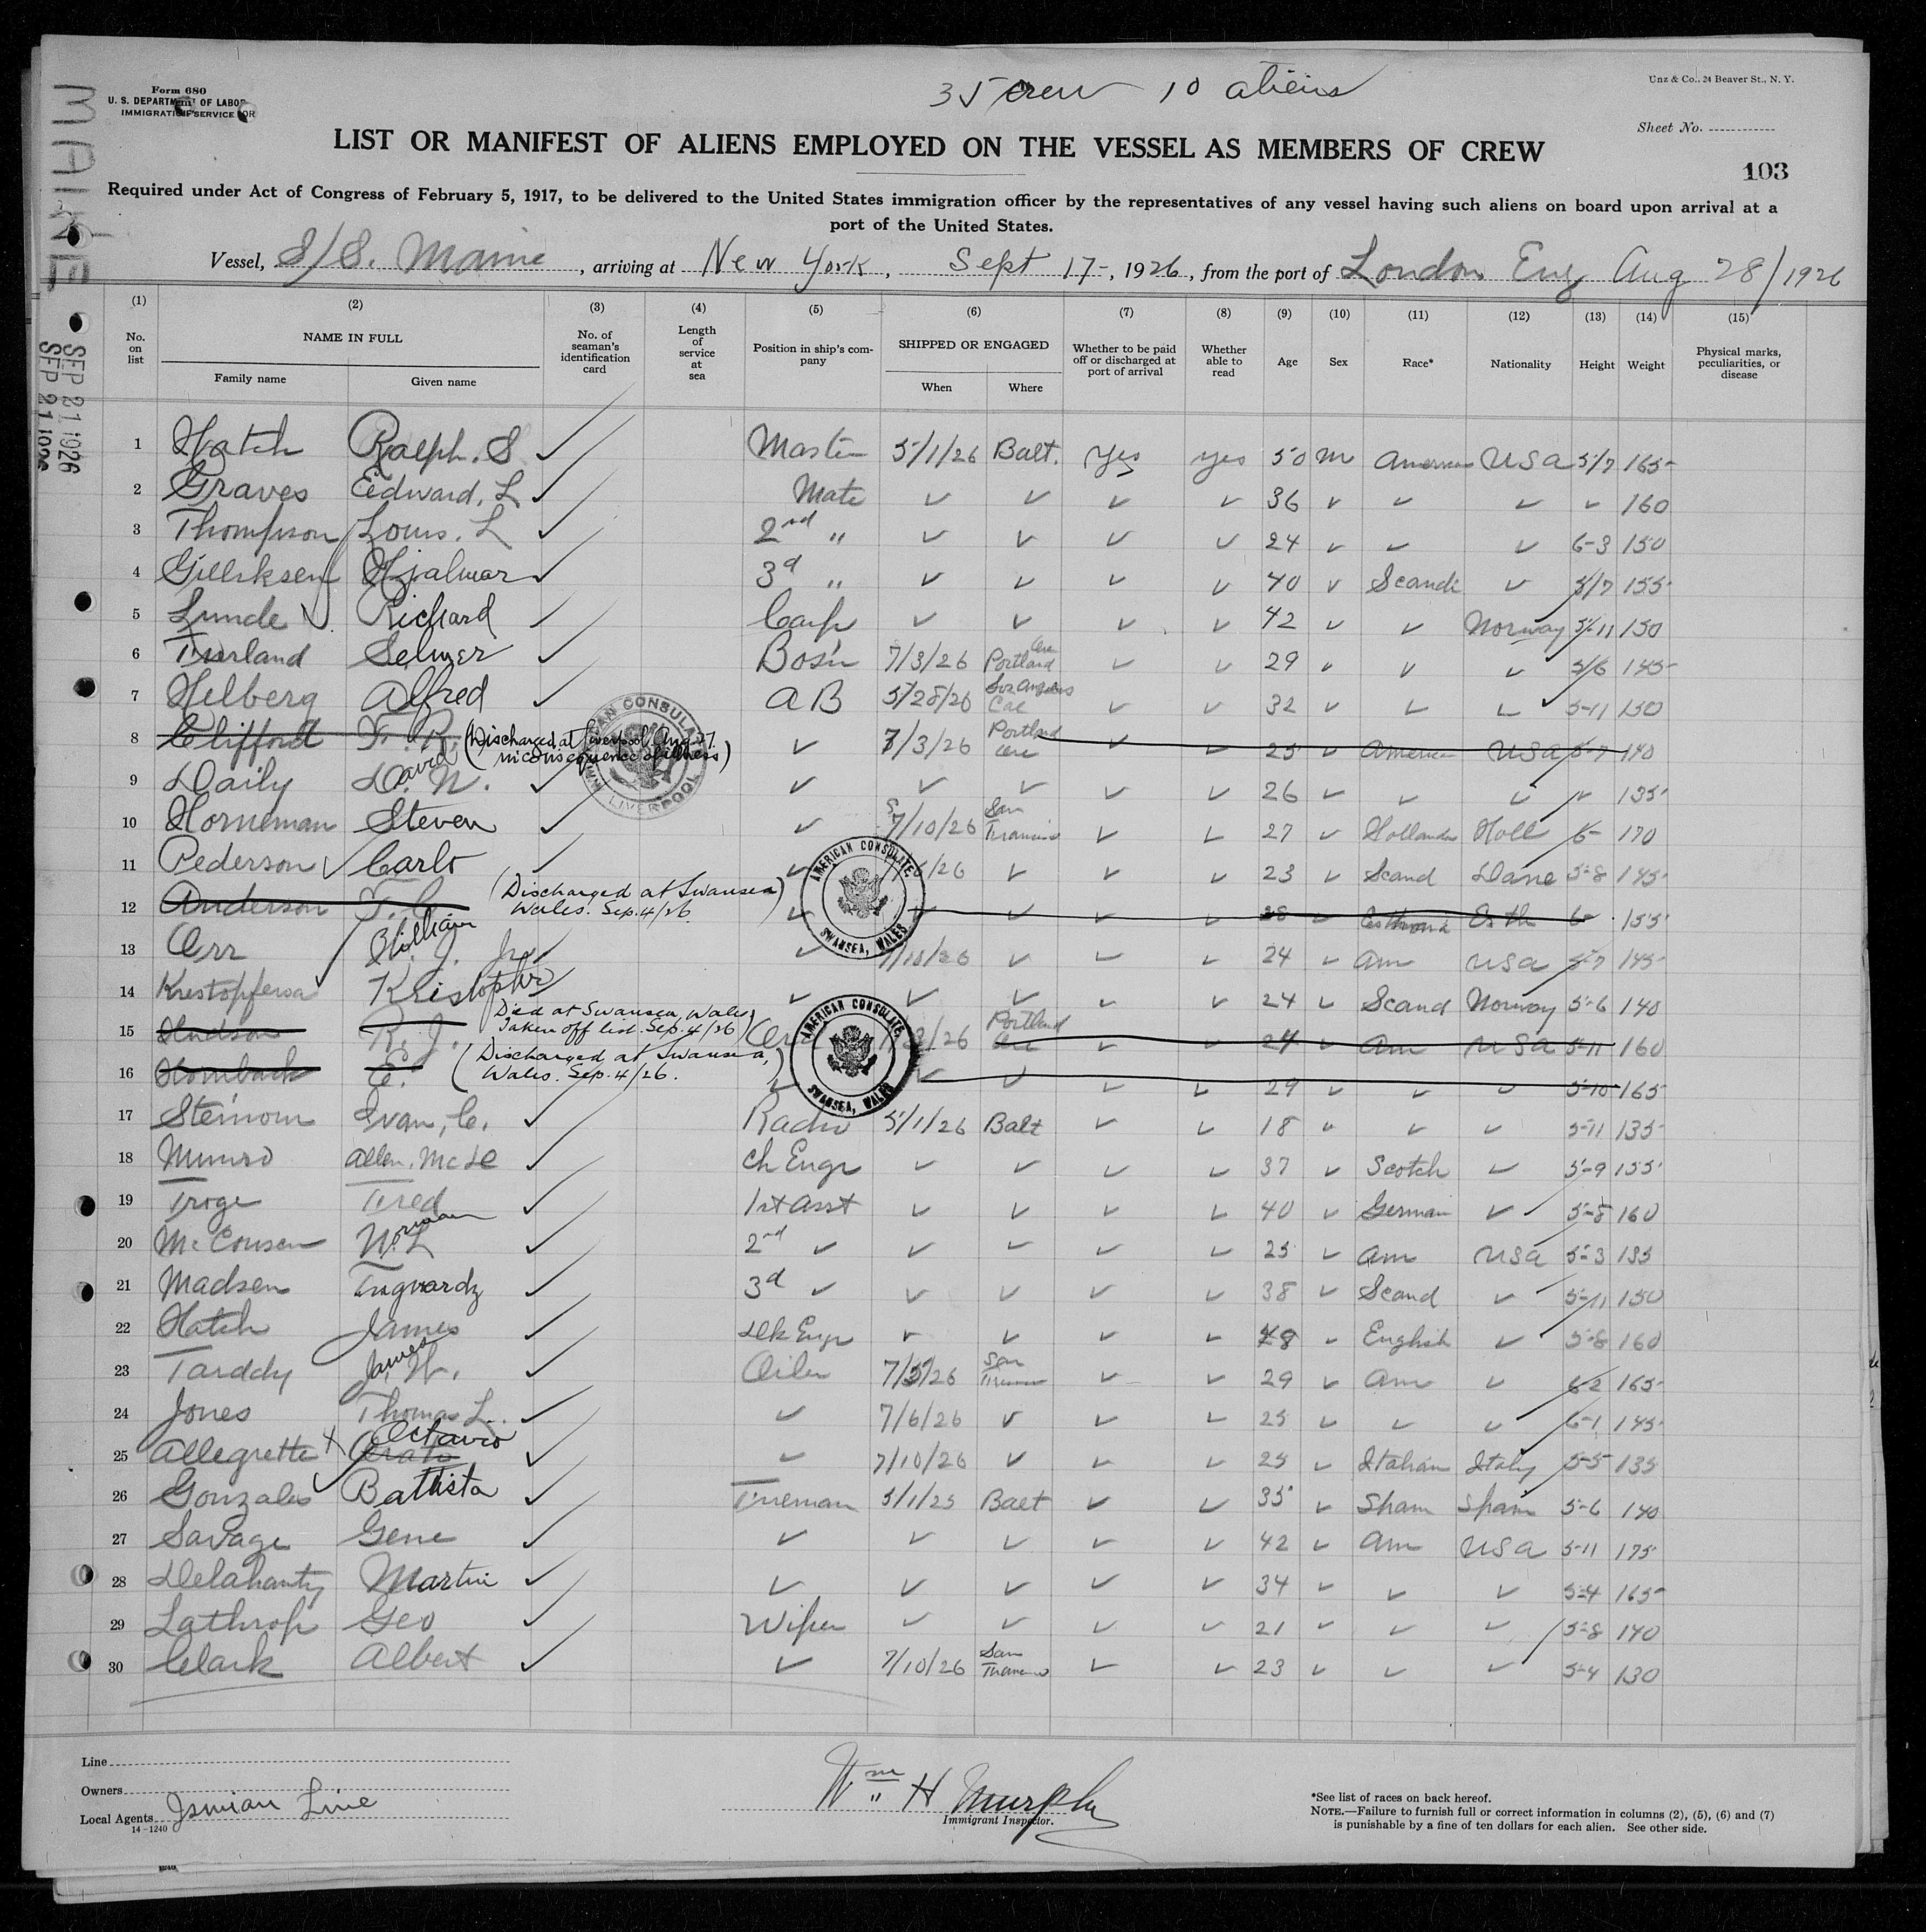 Form 680
U. S. DEPARTMENT OF LABOR
IMMIGRATION SERVICE
35 crew 10 aliens
Unz & Co., 24 Beaver St., N. Y.
Sheet No.
LIST OR MANIFEST OF ALIENS EMPLOYED ON THE VESSEL AS MEMBERS OF CREW
103
Required under Act of Congress of February 5, 1917, to be delivered to the United States immigration officer by the representatives of any vessel having such aliens on board upon arrival at a
port of the United States.
MAINE
SEP 21 1926
SEP 21 1926
Vessel, S/S. Maine, arriving at New York, Sept 17-, 1926, from the port of London Eng Aug 28/1926
(1) (2) (3) (4) (5) (6) (7) (8) (9) (10) (11) (12) (13) (14) (15)
No. on list NAME IN FULL Family name Given name No. of seaman's identification card Length of service at sea Position in ship's company SHIPPED OR ENGAGED When Where Whether to be paid off or discharged at port of arrival Whether able to read Age Sex Race* Nationality Height Weight Physical marks, peculiarities, or disease
1 Hatch Ralph. S ✓ Master 5/1/26 Balt. Yes yes 50 m American USA 5/7 165
2 Graves Edward, L ✓ Mate ✓ ✓ ✓ ✓ 36 ✓ ✓ ✓ ✓ 160
3 Thompson Louis. L ✓ 2nd " ✓ ✓ ✓ ✓ 24 ✓ ✓ ✓ 6-3 150
4 Hjalmar ✓ 3d " ✓ ✓ ✓ ✓ 40 ✓ Scandi ✓ 5/7 155
5 Lunde Richard ✓ Carp ✓ ✓ ✓ ✓ 42 ✓ ✓ Norway 5-11 150
6 Selmer ✓ Bos'n 7/3/26 Portland Ore ✓ ✓ 29 ✓ ✓ ✓ 5/6 145
7 Helberg Alfred ✓ AB 5/28/26 Los Angeles Cal ✓ ✓ 32 ✓ ✓ ✓ 5-11 150
8 Clifford F. R. (Discharged at Liverpool Aug 27, in consequence of illness) ✓ 7/3/26 Portland Ore ✓ ✓ 25 ✓ American USA 5-7 140
AMERICAN CONSULATE LIVERPOOL
9 Daily David N. ✓ ✓ ✓ ✓ ✓ ✓ 26 ✓ ✓ ✓ ✓ 135
10 Horneman Steven ✓ ✓ 7/10/26 San Francis ✓ ✓ 27 ✓ Hollander Holl 6- 170
11 Pederson Carlo ✓ ✓ 6/26 ✓ ✓ ✓ 23 ✓ Scand Dane 5-8 145
12 Anderson F. C. (Discharged at Swansea Wales. Sep. 4/26) ✓ ✓ ✓ ✓ ✓ 28 ✓ Esth 6- 155
AMERICAN CONSULATE SWANSEA, WALES
13 Orr William J. Jr ✓ ✓ 7/10/26 ✓ ✓ ✓ 24 ✓ Am USA 5-7 145
14 Kristoffersa ✓ ✓ ✓ ✓ ✓ 24 ✓ Scand Norway 5-6 140
15 Hudson R. J. Died at Swansea, Wales, Taken off list. Sep. 4/26) 26 Portland Ore ✓ ✓ 24 ✓ Am USA 5-11 160
16 Hornback E. (Discharged at Swansea, Wales. Sep. 4/26.) ✓ ✓ ✓ ✓ ✓ 29 ✓ ✓ ✓ 5-10 165
AMERICAN CONSULATE SWANSEA, WALES
17 Ivan, C. ✓ Radio 5/1/26 Balt ✓ ✓ 18 ✓ ✓ ✓ 5-11 135
18 Munro Allen. McLe ✓ Ch Engr ✓ ✓ ✓ ✓ 37 ✓ Scotch ✓ 5-9 155
19 Troge Fred ✓ 1st Asst ✓ ✓ ✓ ✓ 40 ✓ German ✓ 5-8 160
20 Norman L ✓ 2nd ✓ ✓ ✓ ✓ ✓ 25 ✓ Am USA 5-3 135
21 Madsen Ingvardz ✓ 3d ✓ ✓ ✓ ✓ ✓ 38 ✓ Scand ✓ 5-11 150
22 Hatch James ✓ Dk Engr ✓ ✓ ✓ ✓ 48 ✓ English ✓ 5-8 160
23 Tarddy James W. ✓ Oiler 7/5/26 San ✓ ✓ 29 ✓ Am ✓ 6-2 165
24 Jones Thomas L. ✓ ✓ 7/6/26 ✓ ✓ ✓ 25 ✓ ✓ ✓ 6-1 145
25 Allegrette Octavio ✓ ✓ 7/10/26 ✓ ✓ ✓ 25 ✓ Italian Italy 5-5 135
26 Gonzales Battista ✓ Fireman 5/1/25 Balt ✓ ✓ 35 ✓ Span Spain 5-6 140
27 Savage Gene ✓ ✓ ✓ ✓ ✓ ✓ 42 ✓ Am USA 5-11 175
28 Delahanty Martin ✓ ✓ ✓ ✓ ✓ ✓ 34 ✓ ✓ ✓ 5-4 165
29 Lathrop Geo ✓ Wiper ✓ ✓ ✓ ✓ 21 ✓ ✓ ✓ 5-8 140
30 Clark Albert ✓ ✓ 7/10/26 San ✓ ✓ 23 ✓ ✓ ✓ 5-4 130
Line
Owners
Local Agents Ismian Line
14-1240
Wm H Murphy
Immigrant Inspector.
*See list of races on back hereof.
NOTE.—Failure to furnish full or correct information in columns (2), (5), (6) and (7)
is punishable by a fine of ten dollars for each alien. See other side.